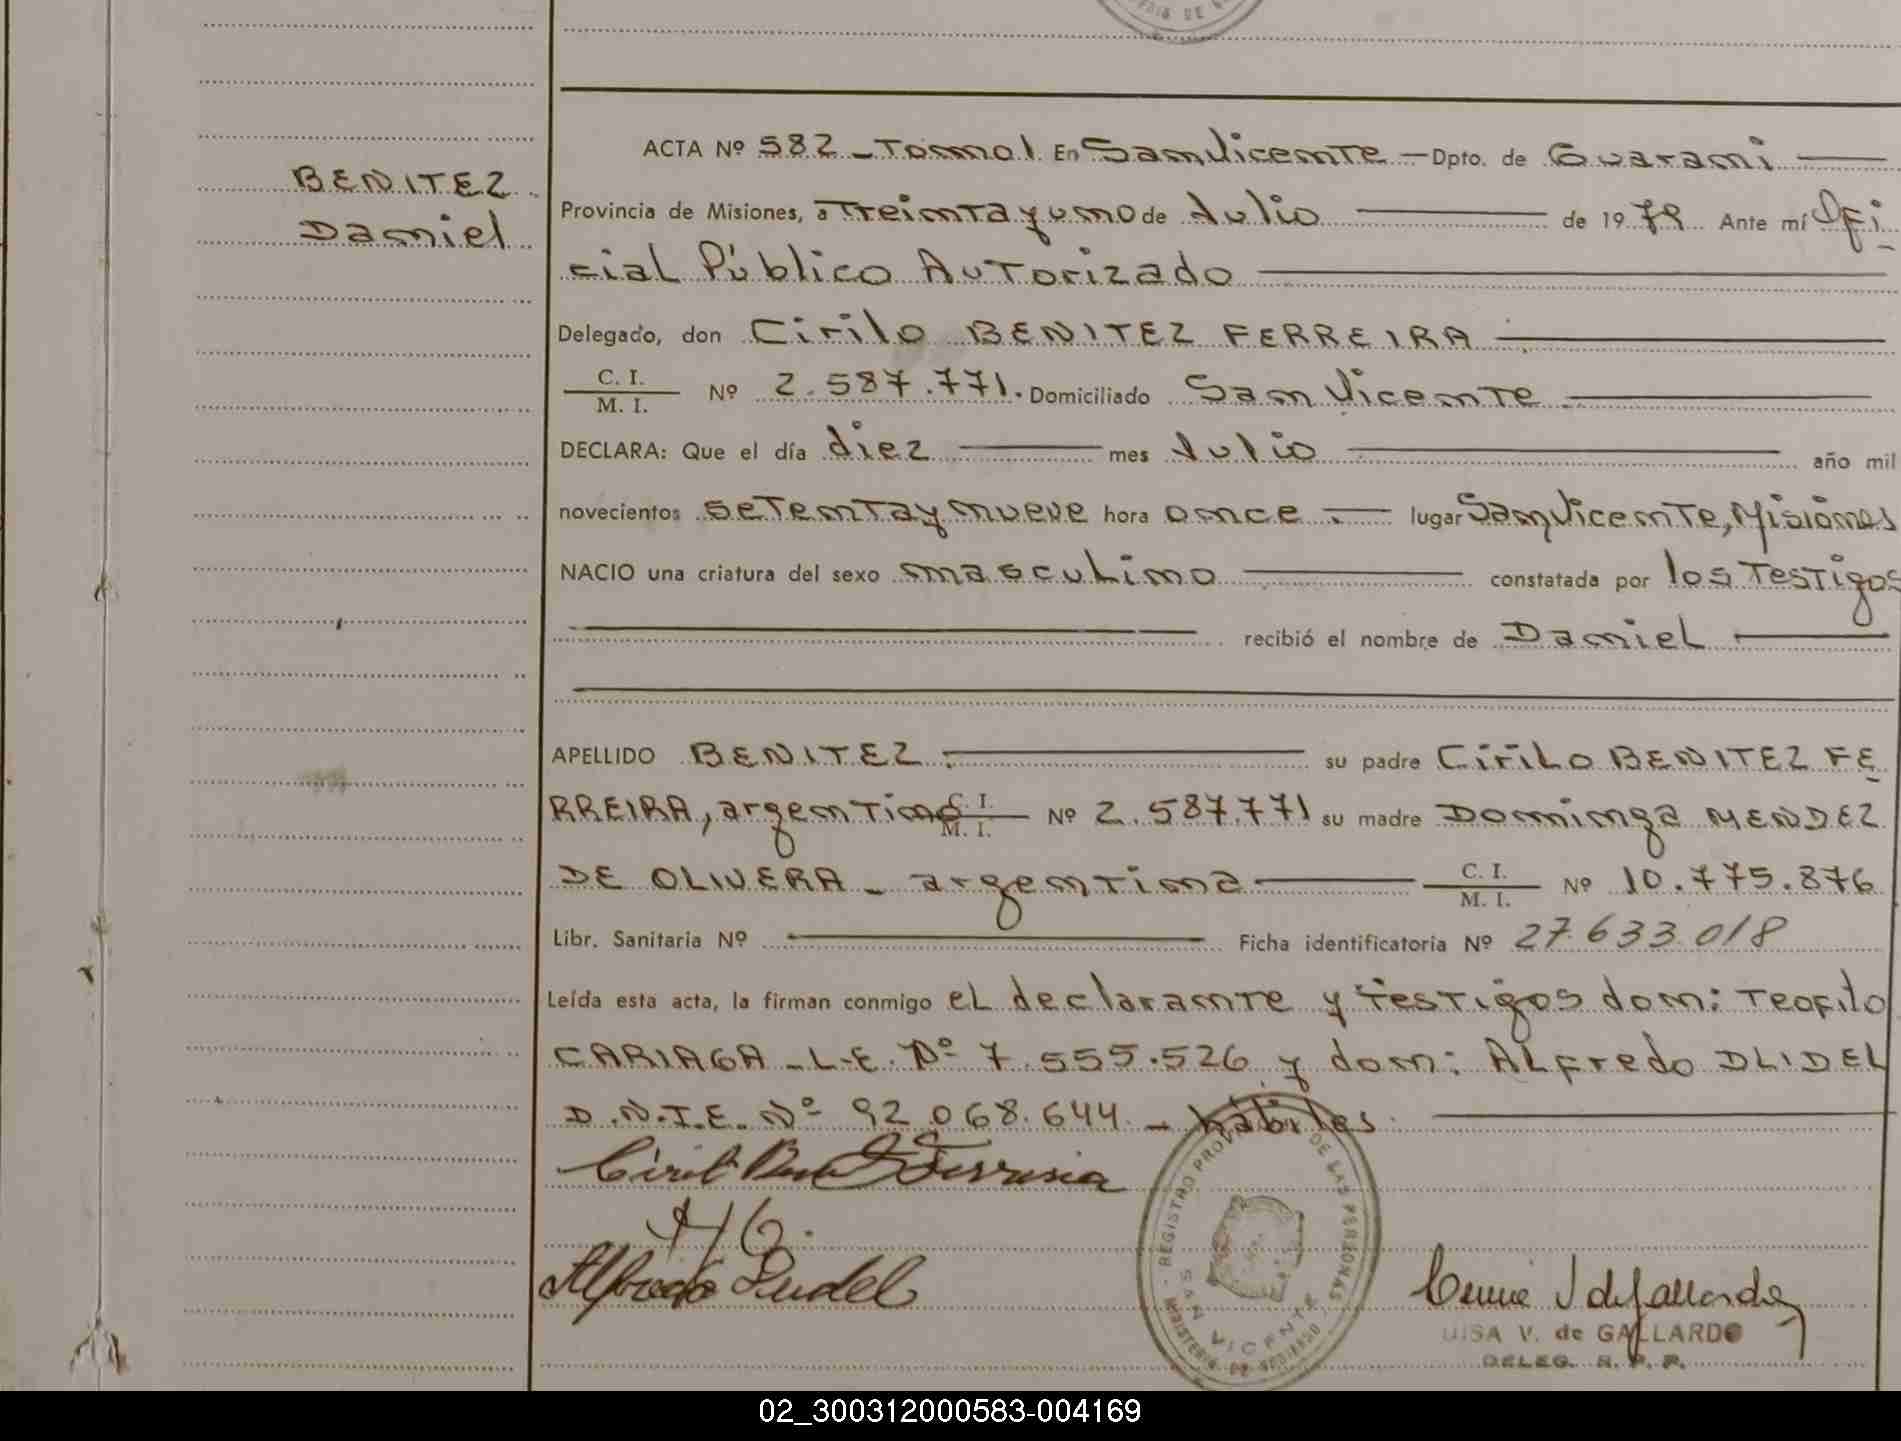 BENITEZ
Daniel
ACTA Nº 582 - Tomo 1. En San Vicente — Dpto. de Guaraní
Provincia de Misiones, a Treinta y uno de Julio de 1979 Ante mí Ofi
cial Público Autorizado
Delegado, don Cirilo BENITEZ FERREIRA
C. I.
M. I. Nº 2.587.771. Domiciliado San Vicente
DECLARA: Que el día diez mes Julio año mil
novecientos setenta y nueve hora once lugar San Vicente, Misiones
NACIO una criatura del sexo masculino constatada por los Testigos
recibió el nombre de Daniel
APELLIDO BENITEZ su padre Cirilo BENITEZ FE
RREIRA, argentino C. I. M. I. Nº 2.587.771 su madre Dominga MENDEZ
DE OLIVERA - argentina C. I. M. I. Nº 10.775.876
Libr. Sanitaria Nº Ficha identificatoria Nº 27.633.018
Leída esta acta, la firman conmigo el declarante y testigos don: Teofilo
CARIAGA - L.E. Nº 7.555.526 y don: Alfredo DLIDEL
D.N.I.E. Nº 92.068.644 - hábiles
REGISTRO DE LAS PERSONAS
MINISTERIO DE GOBIERNO
SAN VICENTE
V. de GALLARDO
DELEG. R. P. P.
02_300312000583-004169